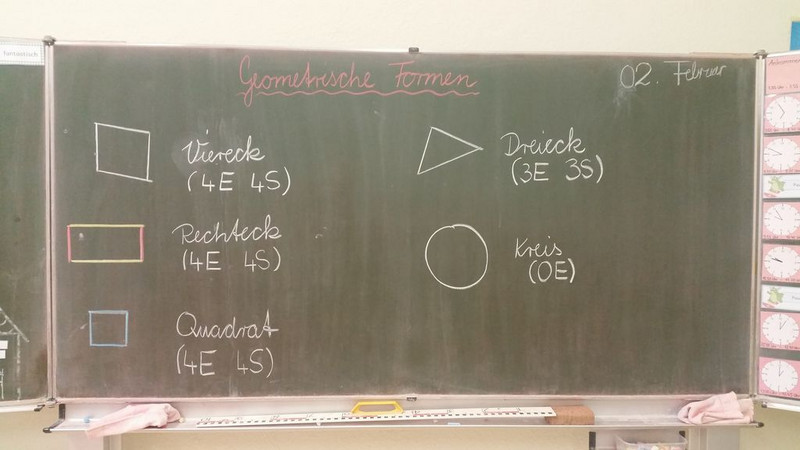 fantastisch
Geometrische Formen
02. Februar
Viereck
(4E 4S)
Rechteck
(4E 4S)
Quadrat
(4E 4S)
Dreieck
(3E 3S)
Kreis
(0E)